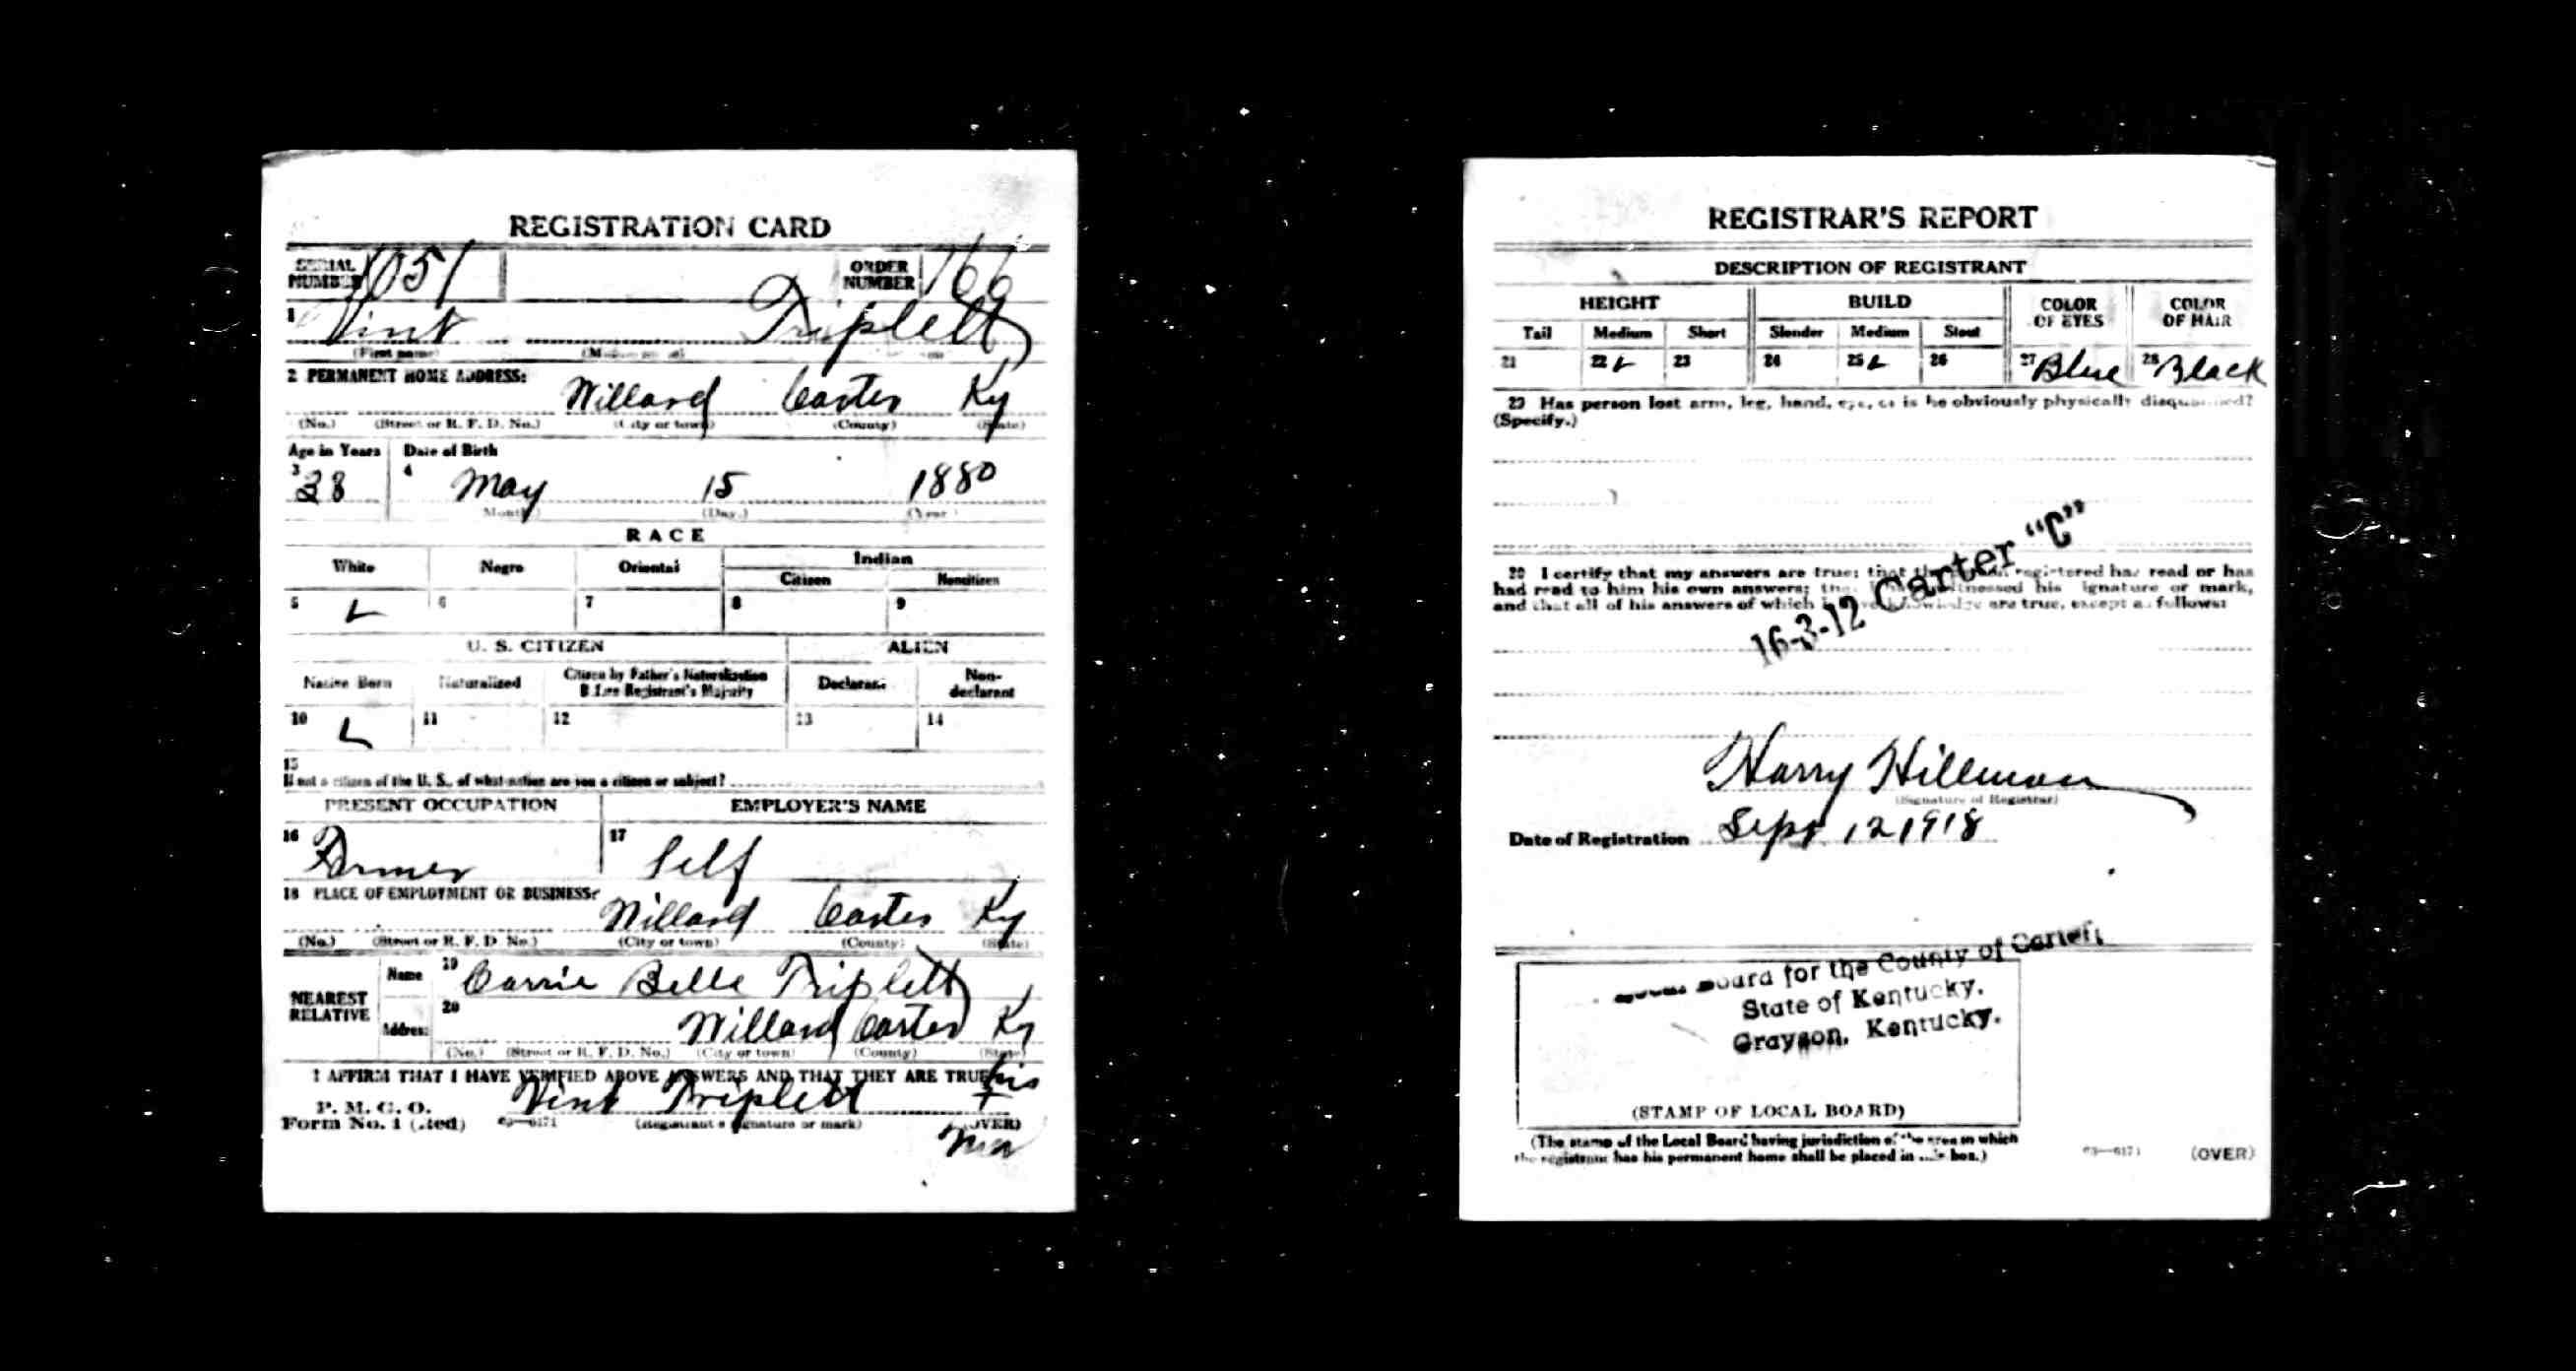 REGISTRATION CARD
SERIAL NUMBER 1051 ORDER NUMBER 166
1 Vint Triplett
(First name)
2 PERMANENT HOME ADDRESS:
Willard Carter Ky
(No.) (Street or R. F. D. No.) (City or town) (County) (State)
Age in Years Date of Birth
3 38 4 May 15 1880
(Month.) (Day.) (Year.)
RACE
White Negro Oriental Indian
Citizen Noncitizen
5 6 7 8 9
U. S. CITIZEN ALIEN
Native Born Naturalized Citizen by Father's Naturalization Before Registrant's Majority Declarant Non-declarant
10 11 12 13 14
15
If not a citizen of the U. S., of what nation are you a citizen or subject?
PRESENT OCCUPATION EMPLOYER'S NAME
16 Farmer 17 Self
18 PLACE OF EMPLOYMENT OR BUSINESS:
Willard Carter Ky
(No.) (Street or R. F. D. No.) (City or town) (County) (State)
NEAREST RELATIVE
Name 19 Carrie Belle Triplett
Address 20 Willard Carter Ky
(No.) (Street or R. F. D. No.) (City or town) (County) (State)
I AFFIRM THAT I HAVE VERIFIED ABOVE ANSWERS AND THAT THEY ARE TRUE
his
P. M. G. O. Vint Triplett +
Form No. 1 (Red) 03—6171 (Registrant's signature or mark) (OVER)
REGISTRAR'S REPORT
DESCRIPTION OF REGISTRANT
HEIGHT BUILD COLOR OF EYES COLOR OF HAIR
Tall Medium Short Slender Medium Stout
21 22 23 24 25 26 27 Blue 28 Black
29 Has person lost arm, leg, hand, eye, or is he obviously physically disqualified?
(Specify.)
16-3-12 Carter "C"
30 I certify that my answers are true; that the person registered has read or has
had read to him his own answers; that I have witnessed his signature or mark,
and that all of his answers of which I have knowledge are true, except as follows:
Harry Hillman
(Signature of Registrar)
Date of Registration Sept 12 1918
Local Board for the County of Carter,
State of Kentucky,
Grayson, Kentucky.
(STAMP OF LOCAL BOARD)
(The stamp of the Local Board having jurisdiction of the area in which
the registrant has his permanent home shall be placed in this box.)
03—6171 (OVER)